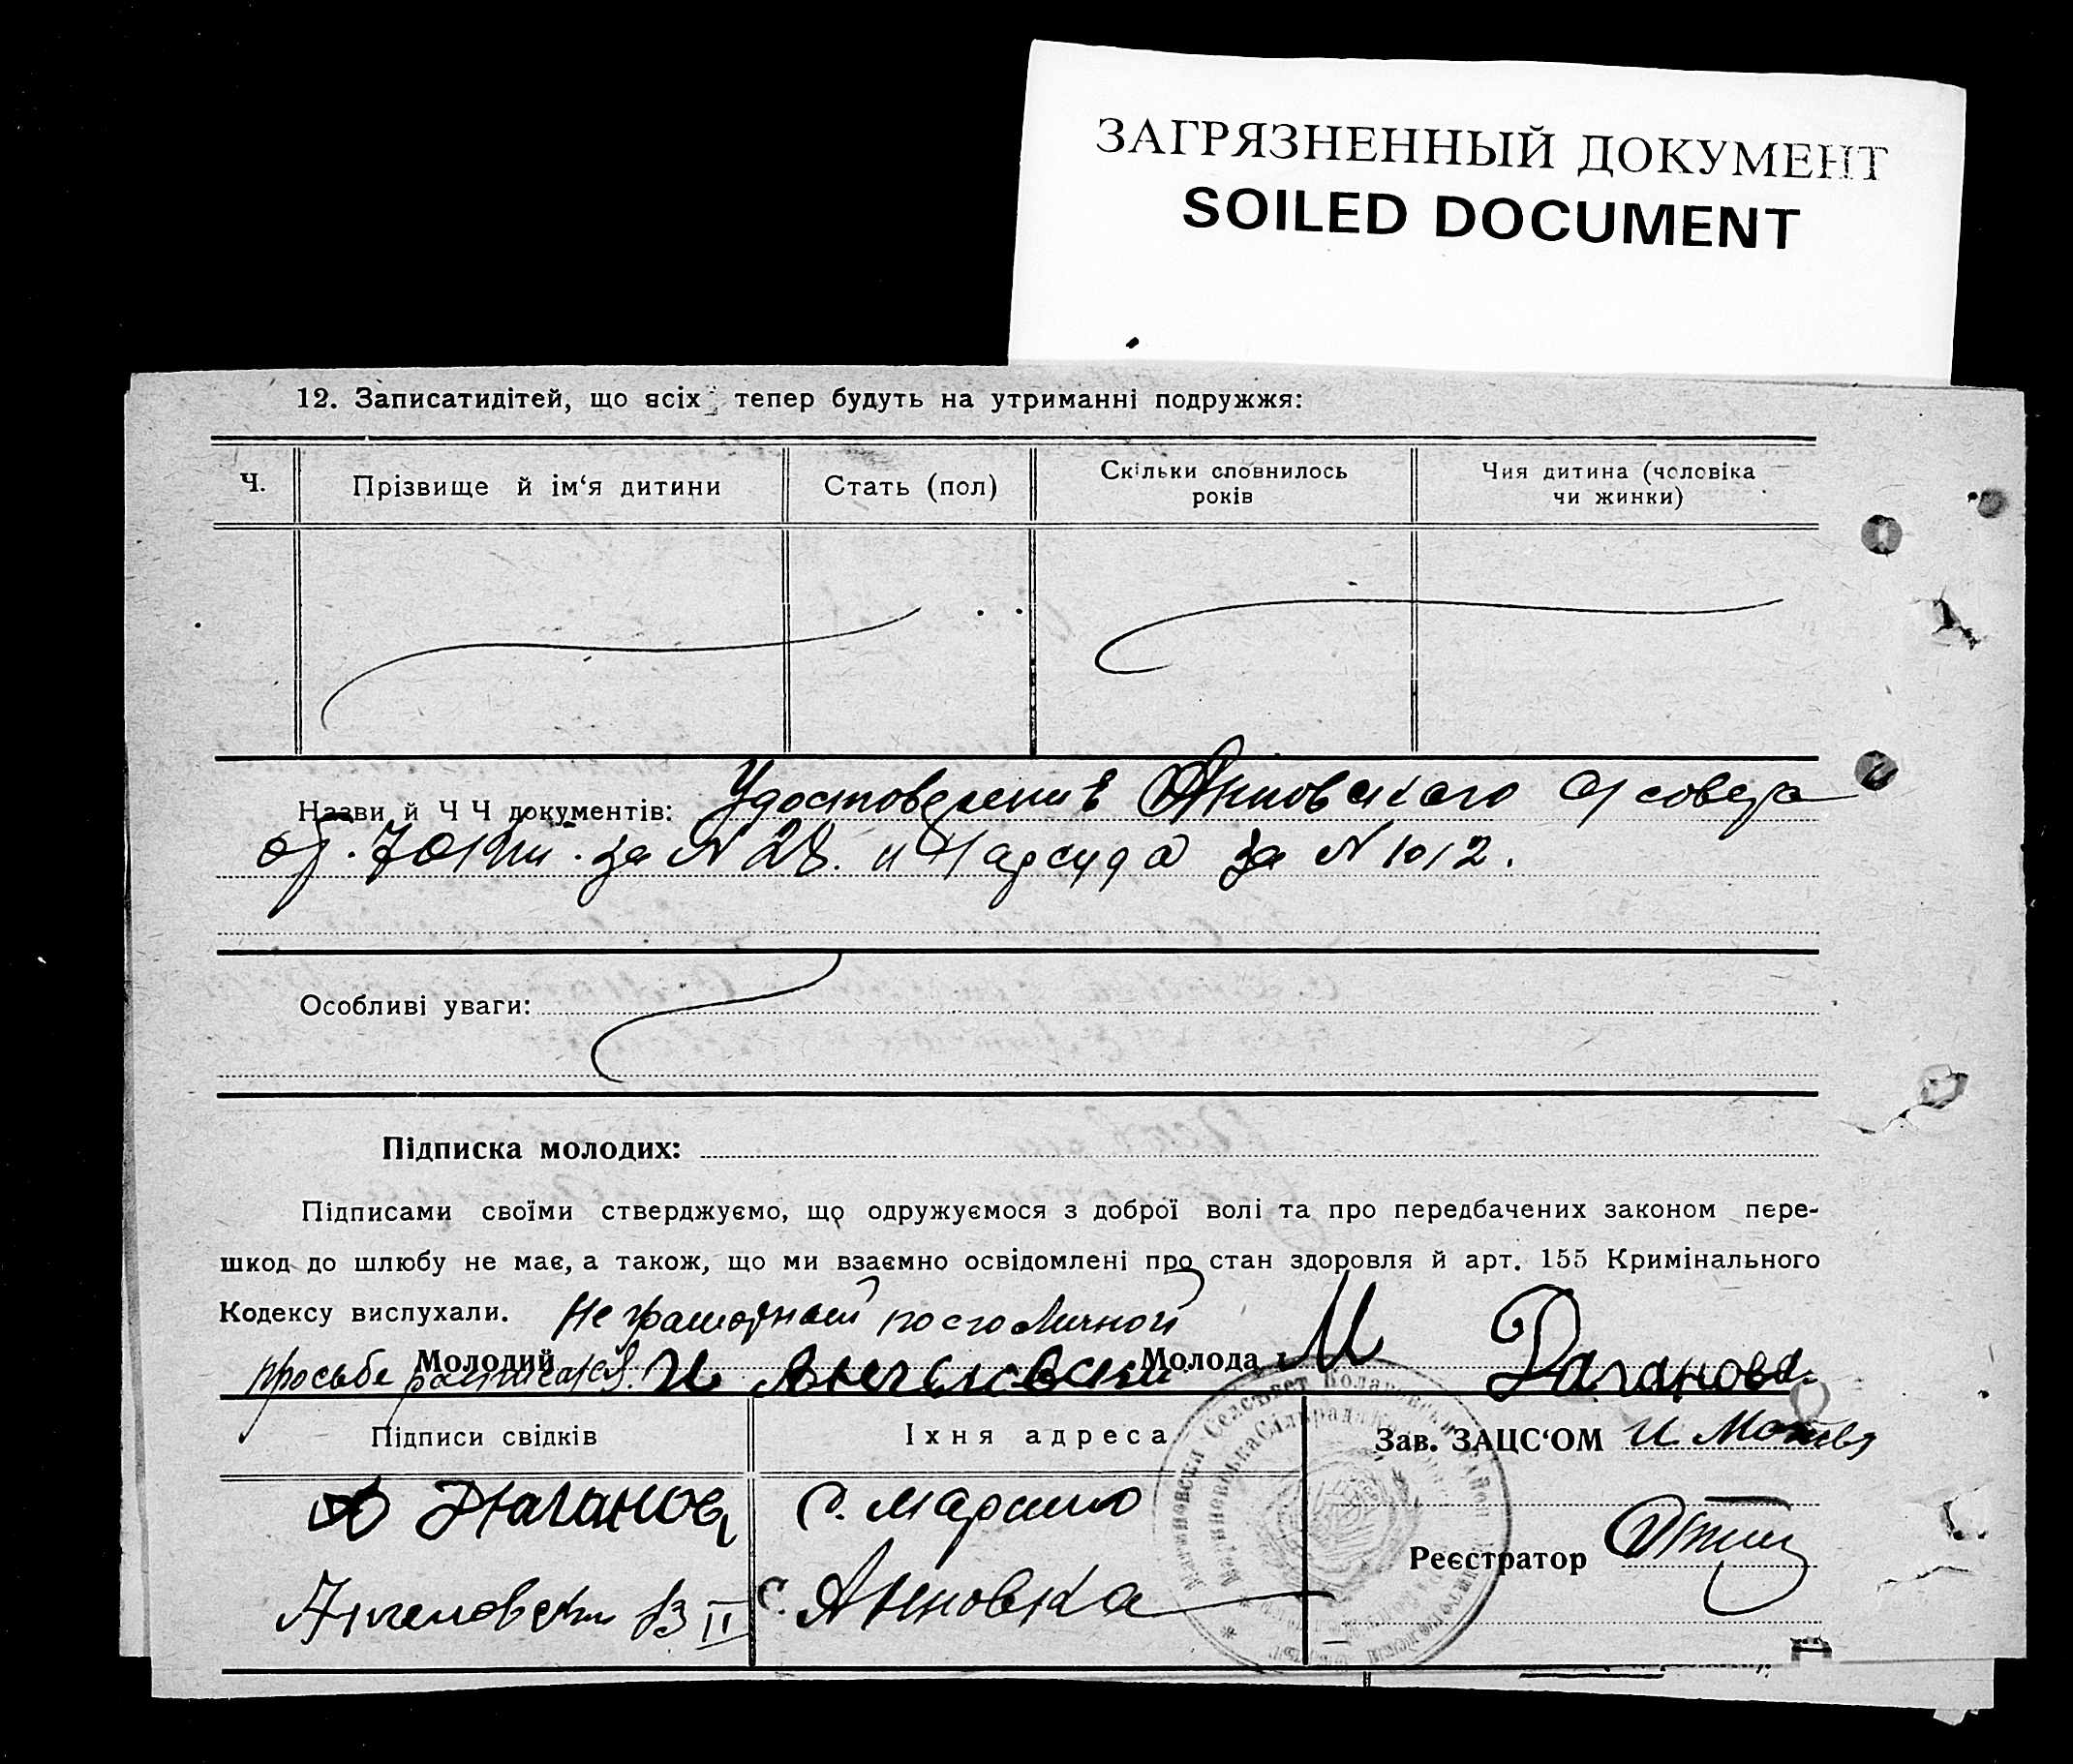 ЗАГРЯЗНЕННЫЙ ДОКУМЕНТ
SOILED DOCUMENT
12. Записатидітей, що всіх тепер будуть на утриманні подружжя:
Ч.
Прізвище й ім‘я дитини
Стать (пол)
Скільки сповнилось
років
Чия дитина (чоловіка
чи жинки)
Назви й Ч Ч документів: Удостоверение Анновского с/совета
от за N 28. и Нарсуда за N 1012.
Особливі уваги:
Підписка молодих:
Підписами своїми стверджуємо, що одружуємося з доброї волі та про передбачених законом пере-
шкод до шлюбу не має, а також, що ми взаємно освідомлені про стан здоровля й арт. 155 Кримінального
Кодексу вислухали. Не грамотный по его личной
просьбе расписался.
Молодий И Ангеловски Молода М Даганова
Підписи свідків
Їхня адреса
Зав. ЗАЦС‘ОМ И.
Даганов
с.
Реєстратор
Ангеловски
с. Анновка